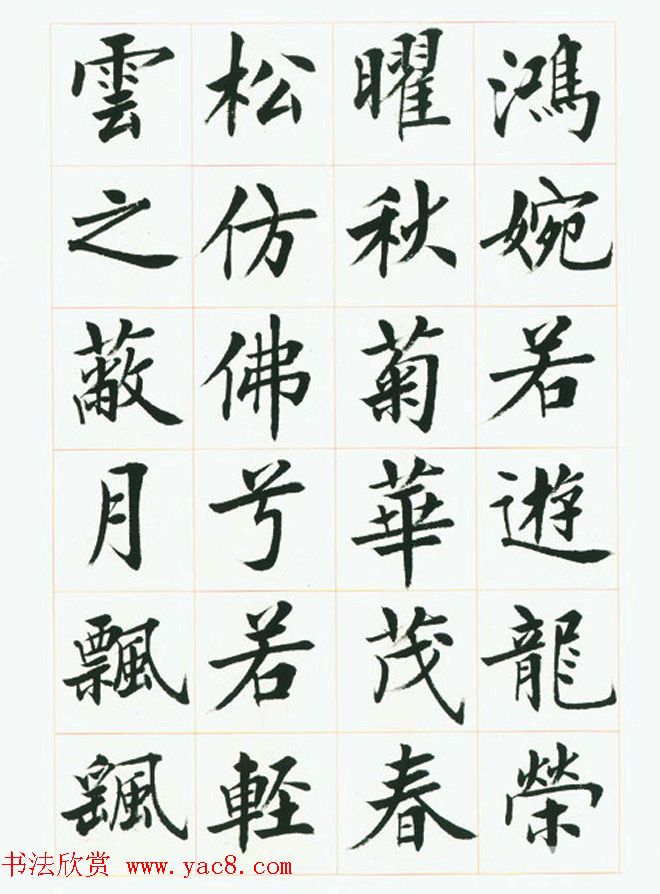 鴻婉若遊龍榮
曜秋菊華茂春
松仿佛兮若軽
雲之蔽月飄飖
书法欣赏 www.yac8.com